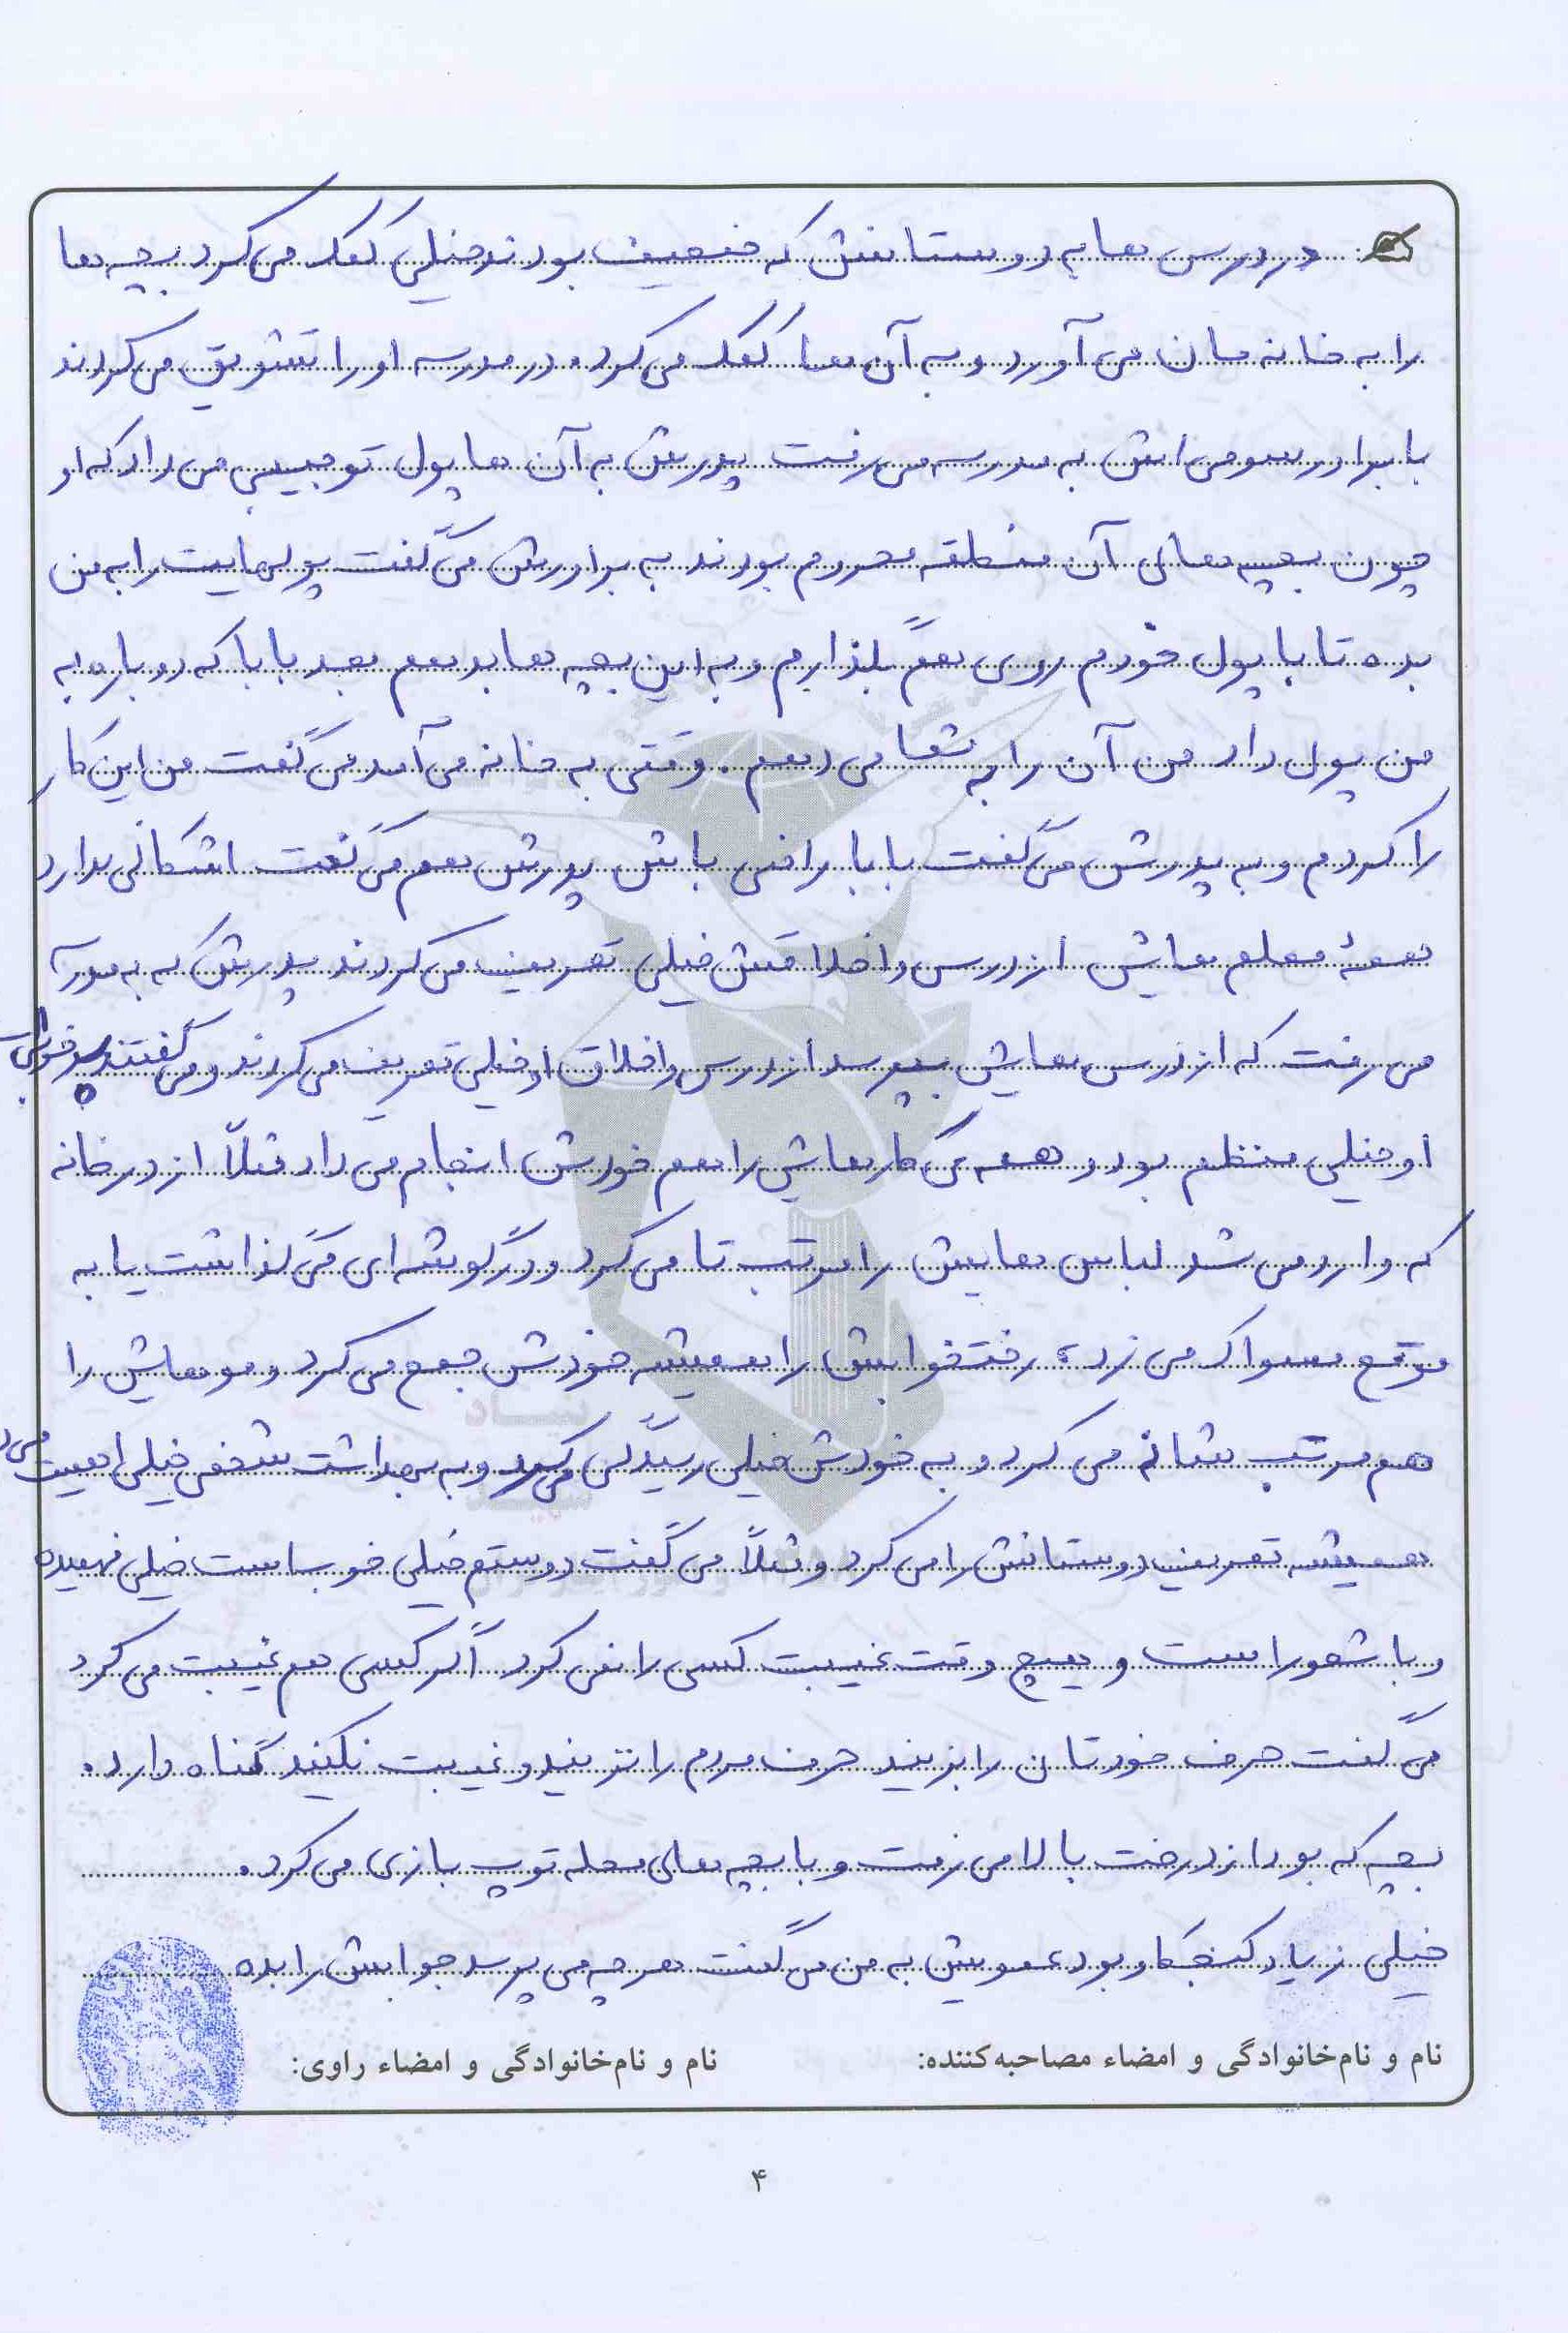 در درس ها به دوستانش که ضعیف بودند خیلی کمک می کرد بچه ها
را به خانه مان می آورد و به آن ها کمک می کرد. در مدرسه او را تشویق می کردند
با برادر سومی اش به مدرسه می رفت پدرش به آن ها پول توجیبی می داد که او
چون بچه های آن منطقه محروم بودند به برادرش می گفت پولهایت را به من
بده تا با پول خودم روی هم بگذاریم و به این بچه ها بدهم بعد بابا که دوباره به
من پول داد من آن را به شما می دهم. وقتی به خانه می آمد می گفت من این کار
را کردم و به پدرش می گفت بابا راضی باش پدرش هم می گفت اشکالی ندارد
همهٔ معلم هایش از درس و اخلاقش خیلی تعریف می کردند پدرش که به مدرسه
می رفت که از درس هایش بپرسد از درس و اخلاق او خیلی تعریف می کردند و می گفتند پسر خوبی است
او خیلی منظم بود و همه ی کارهایش را هم خودش انجام می داد مثلاً از در خانه
که وارد می شد لباس هایش را مرتب تا می کرد و در گوشه ای می گذاشت یا به
موقع مسواک می زد، رختخوابش را همیشه خودش جمع می کرد و موهایش را
هم مرتب شانه می کرد و به خودش خیلی رسیدگی می کرد و به بهداشت شخصی خیلی اهمیت می داد
همیشه تعریف دوستانش را می کرد و مثلاً می گفت دوستم خیلی خوب است خیلی فهمیده
و با شعور است و هیچ وقت غیبت کسی را نمی کرد. اگر کسی هم غیبت می کرد
می گفت حرف خودتان را بزنید حرف مردم را نزنید و غیبت نکنید گناه دارد.
بچه که بود از درخت بالا می رفت و با بچه های محله توپ بازی می کرد.
خیلی زیاد کنجکاو بود عمویش به من می گفت هر چه می پرسد جوابش را بده
نام و نام‌خانوادگی و امضاء مصاحبه‌کننده:
نام و نام‌خانوادگی و امضاء راوی:
۴